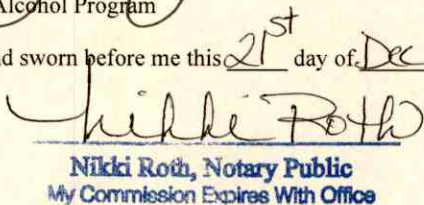 Alcohol Program
d sworn before me this 21st day of Dec
Nikki Roth
Nikki Roth, Notary Public
My Commission Expires With Office